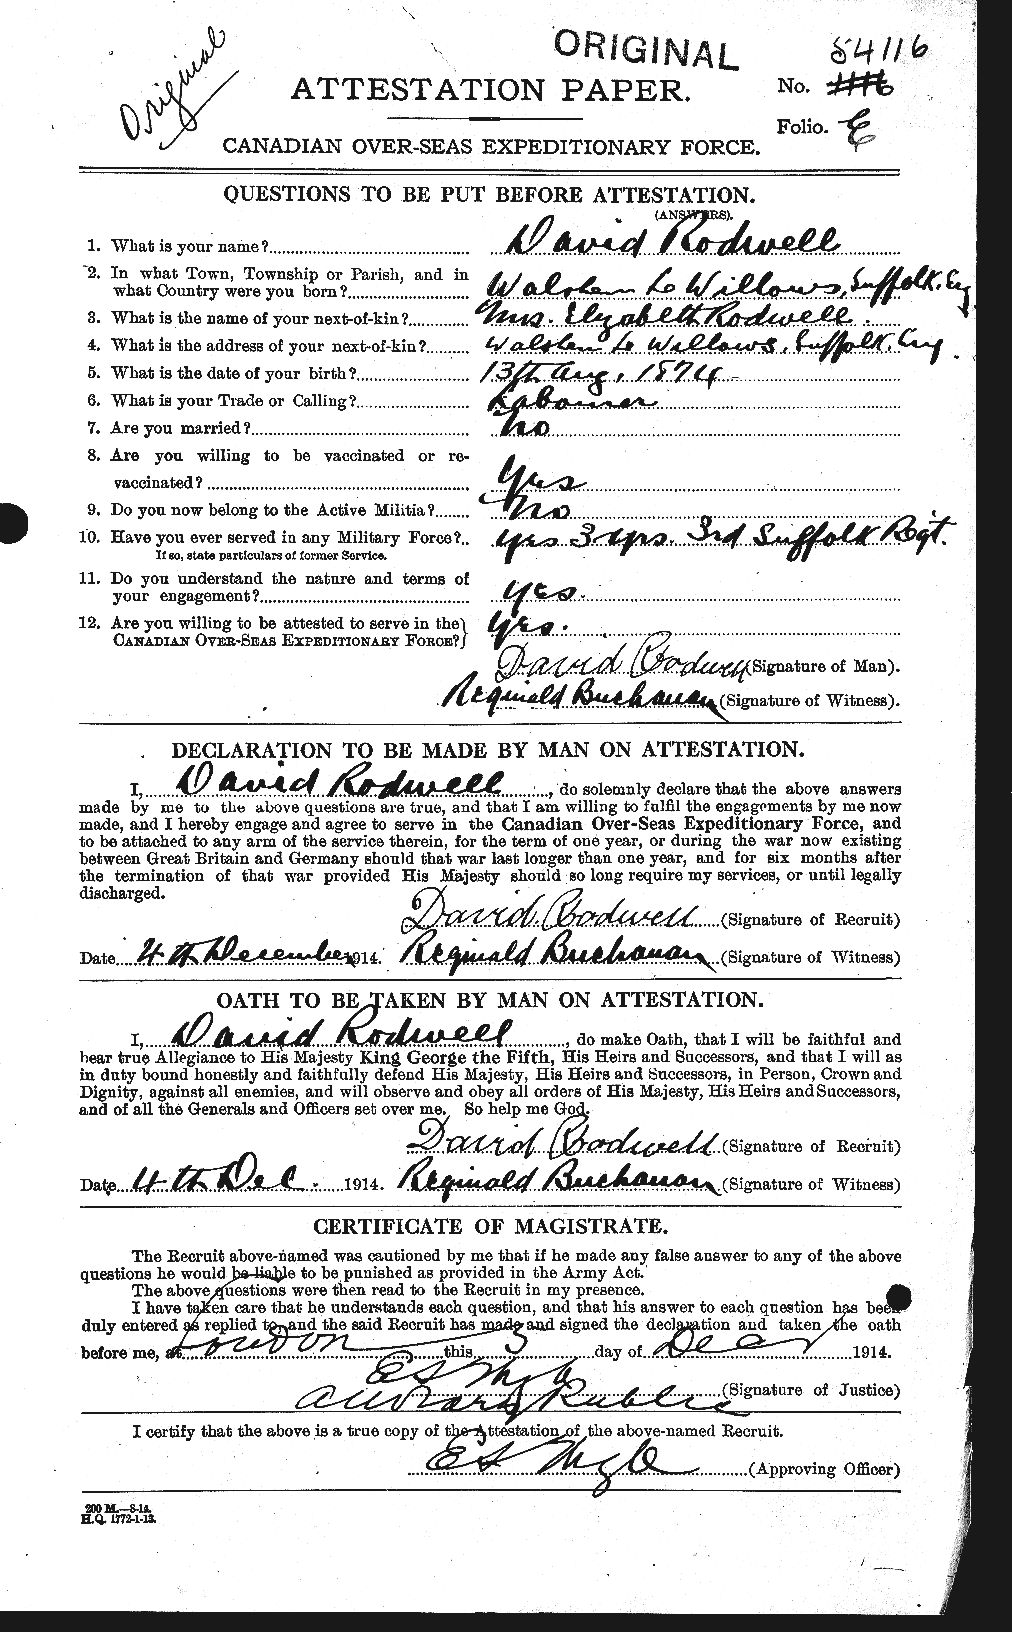 Original
ORIGINAL
54116
ATTESTATION PAPER.
No.
Folio. E
CANADIAN OVER-SEAS EXPEDITIONARY FORCE.
QUESTIONS TO BE PUT BEFORE ATTESTATION.
(ANSWERS).
1. What is your name? David Rodwell
2. In what Town, Township or Parish, and in
what Country were you born? Walsham Le Willows, Suffolk. Eng
3. What is the name of your next-of-kin? Mrs. Elizabeth Rodwell.
4. What is the address of your next-of-kin? Walsham Le Willows, Suffolk, Eng.
5. What is the date of your birth? 13th Aug, 1874
6. What is your Trade or Calling? Labourer
7. Are you married? No
8. Are you willing to be vaccinated or re-
vaccinated? Yes
9. Do you now belong to the Active Militia? No
10. Have you ever served in any Military Force? Yes 3 yrs. 3rd Suffolk Regt.
If so, state particulars of former Service.
11. Do you understand the nature and terms of
your engagement? Yes.
12. Are you willing to be attested to serve in the
CANADIAN OVER-SEAS EXPEDITIONARY FORCE? Yes.
David Rodwell (Signature of Man).
Reginald Buchanan (Signature of Witness).
DECLARATION TO BE MADE BY MAN ON ATTESTATION.
I, David Rodwell, do solemnly declare that the above answers
made by me to the above questions are true, and that I am willing to fulfil the engagements by me now
made, and I hereby engage and agree to serve in the Canadian Over-Seas Expeditionary Force, and
to be attached to any arm of the service therein, for the term of one year, or during the war now existing
between Great Britain and Germany should that war last longer than one year, and for six months after
the termination of that war provided His Majesty should so long require my services, or until legally
discharged.
David Rodwell (Signature of Recruit)
Date 4th December 1914. Reginald Buchanan (Signature of Witness)
OATH TO BE TAKEN BY MAN ON ATTESTATION.
I, David Rodwell, do make Oath, that I will be faithful and
bear true Allegiance to His Majesty King George the Fifth, His Heirs and Successors, and that I will as
in duty bound honestly and faithfully defend His Majesty, His Heirs and Successors, in Person, Crown and
Dignity, against all enemies, and will observe and obey all orders of His Majesty, His Heirs and Successors,
and of all the Generals and Officers set over me. So help me God.
David Rodwell (Signature of Recruit)
Date 4th Dec. 1914. Reginald Buchanan (Signature of Witness)
CERTIFICATE OF MAGISTRATE.
The Recruit above-named was cautioned by me that if he made any false answer to any of the above
questions he would be liable to be punished as provided in the Army Act.
The above questions were then read to the Recruit in my presence.
I have taken care that he understands each question, and that his answer to each question has been
duly entered as replied to, and the said Recruit has made and signed the declaration and taken the oath
before me, at London this 5 day of Dec 1914.
(Signature of Justice)
A Notary Public
I certify that the above is a true copy of the Attestation of the above-named Recruit.
(Approving Officer)
200 M.—8-14.
H.Q. 1772-1-13.